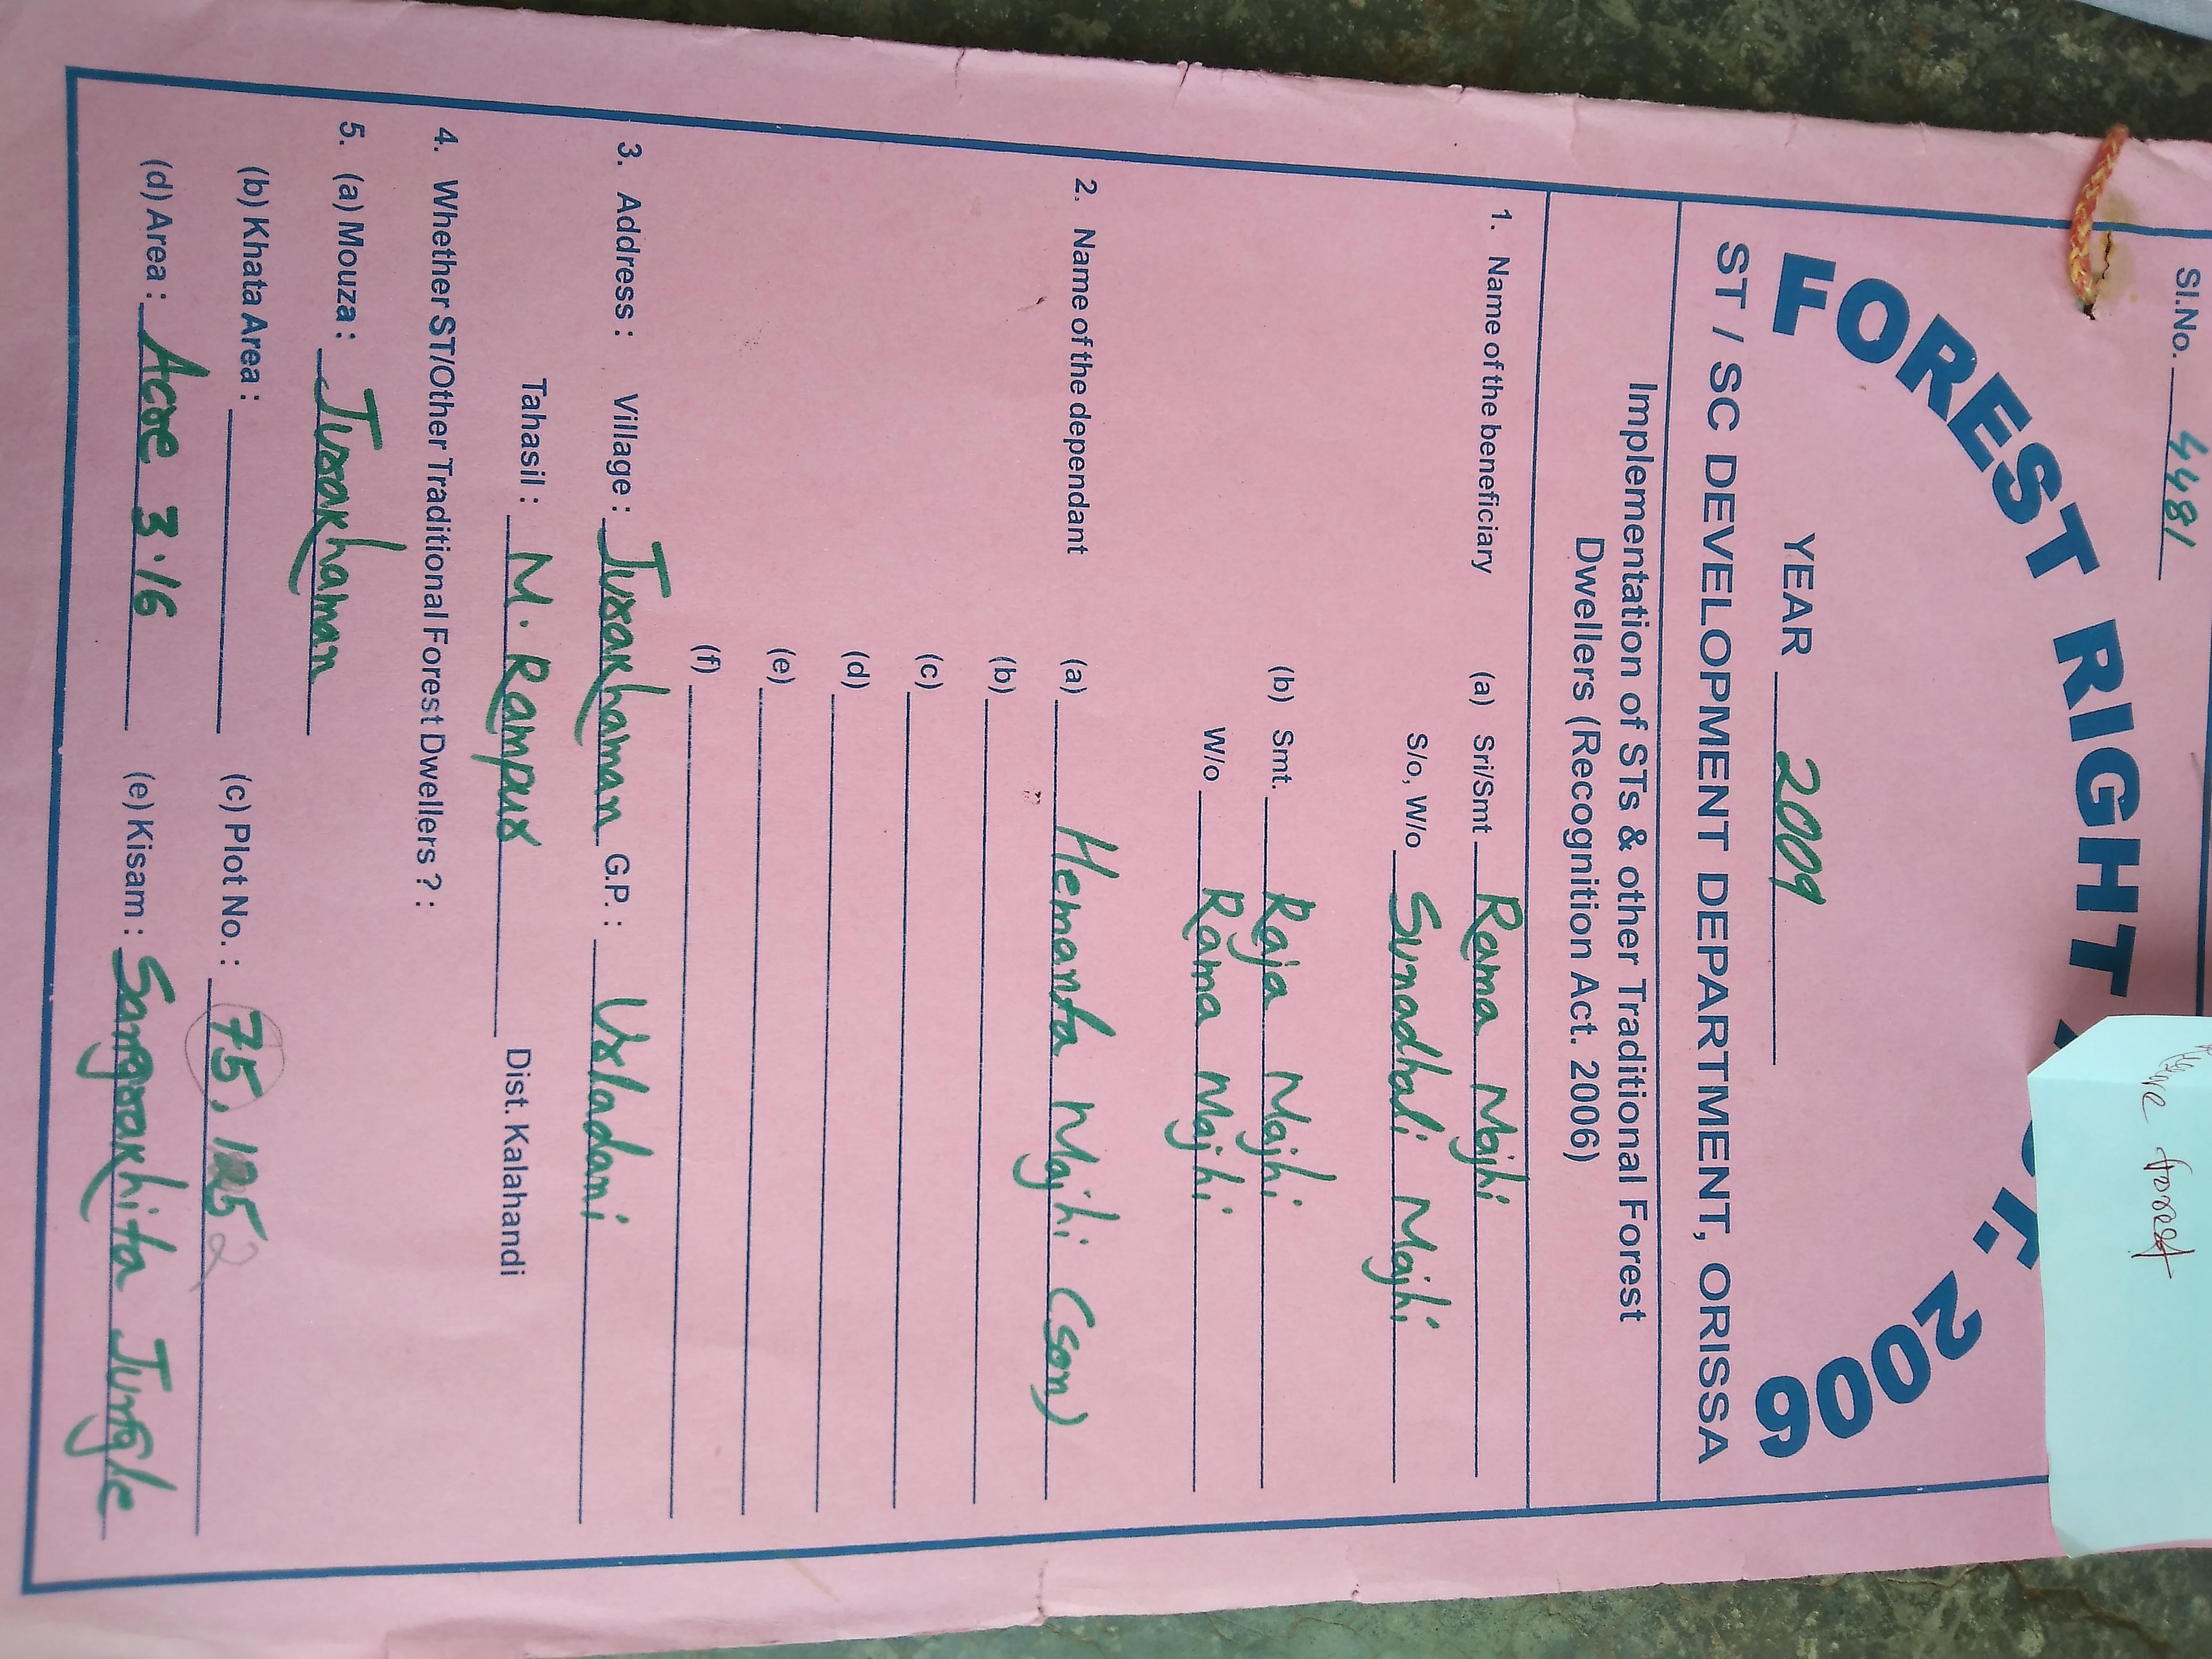 Sl.No. 4481
FOREST RIGHT 2006
YEAR 2009
ST / SC DEVELOPMENT DEPARTMENT, ORISSA
Implementation of STs & other Traditional Forest
Dwellers (Recognition Act. 2006)
1. Name of the beneficiary (a) Sri/Smt Rama Majhi
S/o, W/o Sunadhali Majhi
(b) Smt. Raja Majhi
W/o Rama Majhi
2. Name of the dependant (a) Hemanta Majhi (son)
(b)
(c)
(d)
(e)
(f)
3. Address : Village : Jurakhaman G.P. : Urladani
Tahasil : M. Rampur Dist. Kalahandi
4. Whether ST/Other Traditional Forest Dwellers ? :
5. (a) Mouza : Jurakhaman
(b) Khata Area : (c) Plot No. : 75,
(d) Area : Acre 3.16 (e) Kisam : Sangrakhita Jungle
forest